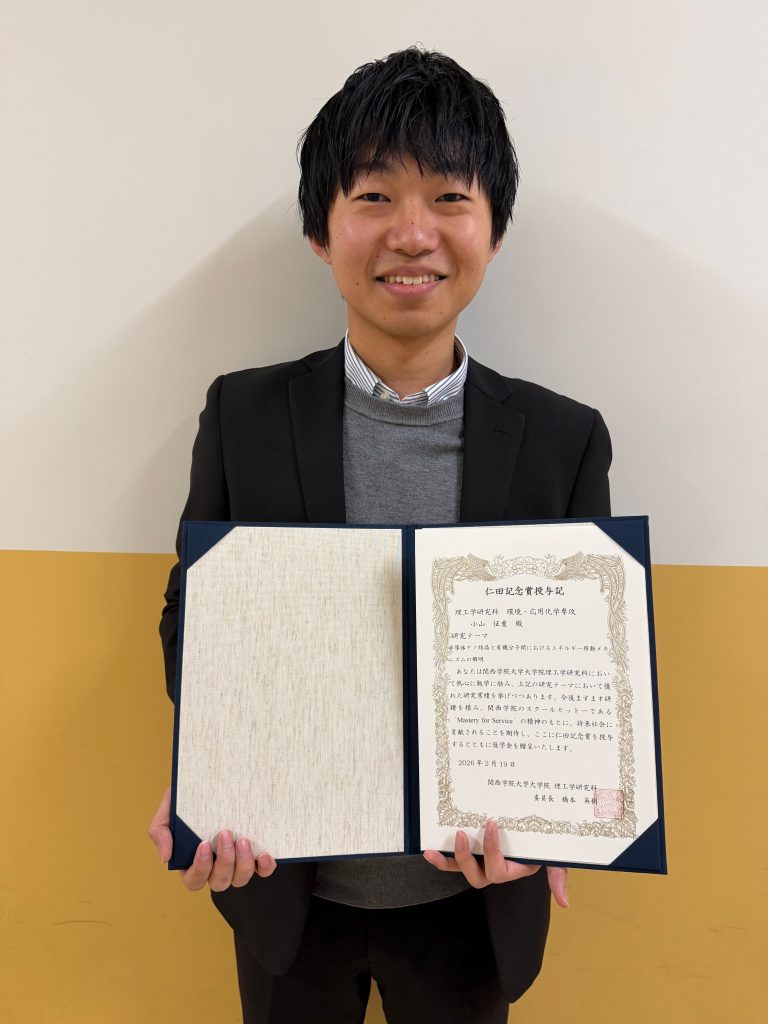 仁田記念賞授与記
理工学研究科 環境・応用化学専攻
小山 征重 殿
研究テーマ
半導体ナノ結晶と有機分子間におけるエネルギー移動メカ
ニズムの解明
あなたは関西学院大学大学院理工学研究科におい
て熱心に勉学に励み、上記の研究テーマにおいて優
れた研究業績を挙げつつあります。今後ますます研
鑽を積み、関西学院のスクールモットーである
‘Mastery for Service’の精神のもとに、将来社会に
貢献されることを期待し、ここに仁田記念賞を授与
するとともに奨学金を贈呈いたします。
2026年2月19日
関西学院大学大学院 理工学研究科
委員長 橋本 英樹